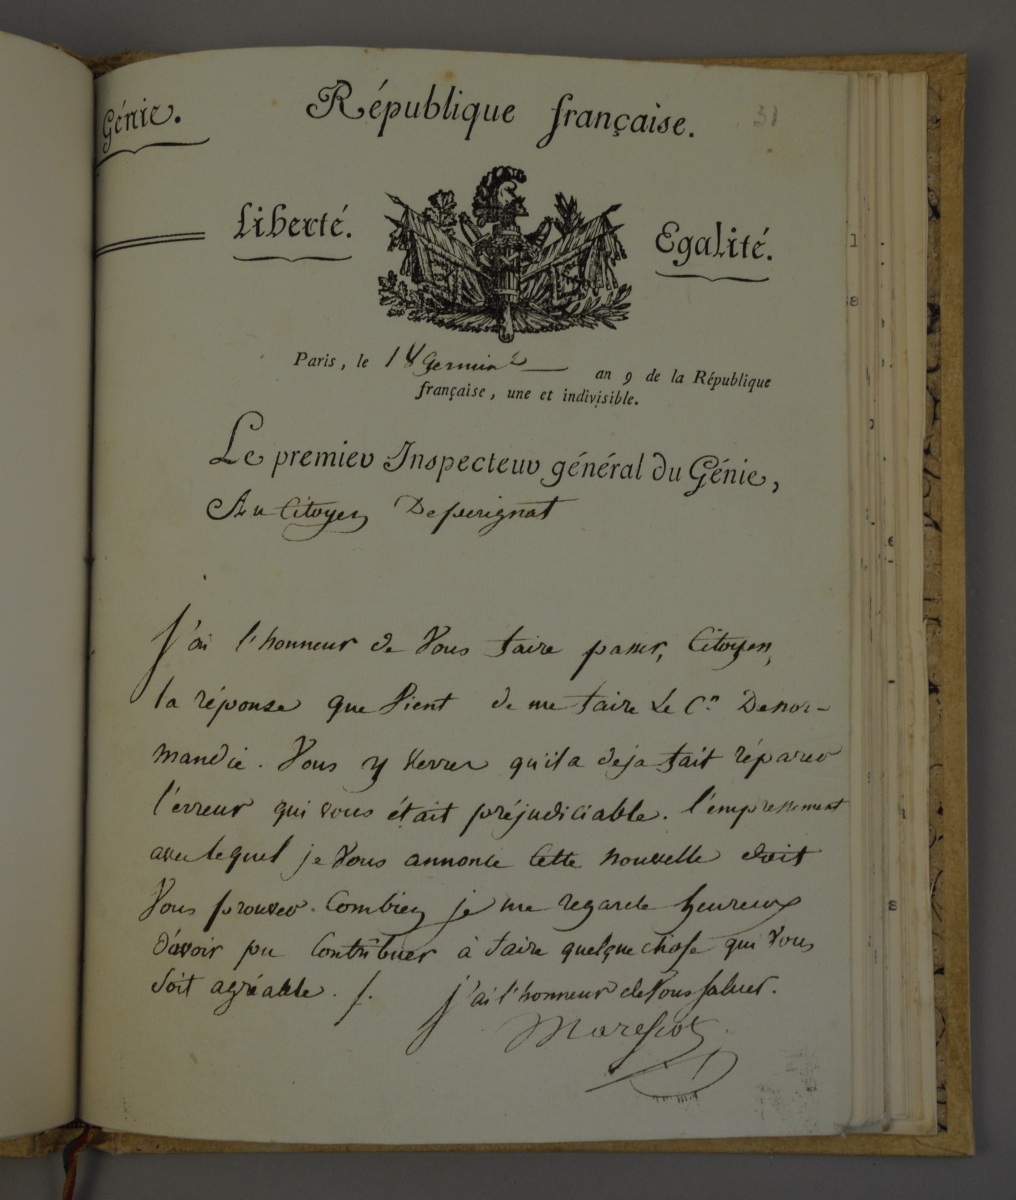 Génie.
République française.
31
Liberté.
Egalité.
Paris, le 18 Germinal an 9 de la République
française, une et indivisible.
Le premier Inspecteur général du Génie,
Au Citoyen Deperignat
J'ai l'honneur de Vous faire passer, Citoyen,
la réponse que Vient de me faire Le C.n Denor-
mandie. Vous y Verrez qu'il a deja fait réparer
l'erreur qui vous était préjudiciable. l'empressement
avec lequel je Vous annonce Cette nouvelle doit
Vous prouver. Combien je me regarde heureux
d'avoir pu Contribuer à faire quelque chose qui Vous
Soit agréable. /. j'ai l'honneur de Vous saluer.
Marescot